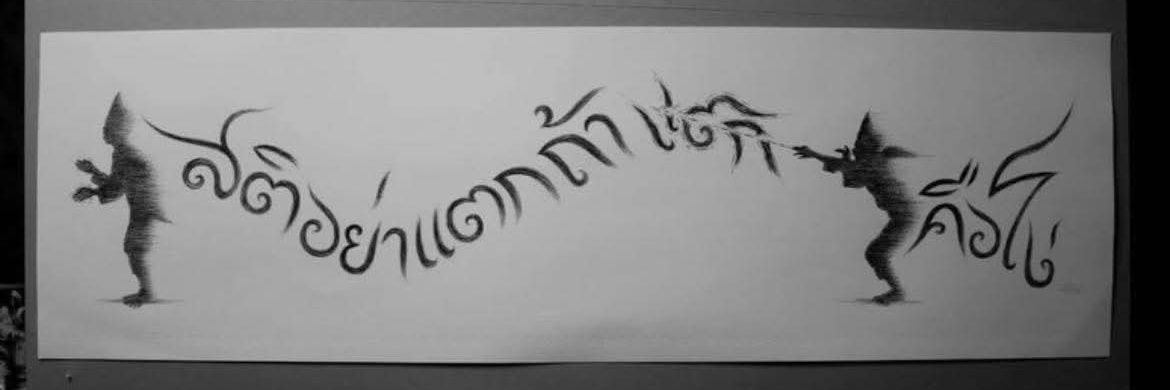 สติอย่าแตกถ้าแตกคือโง่